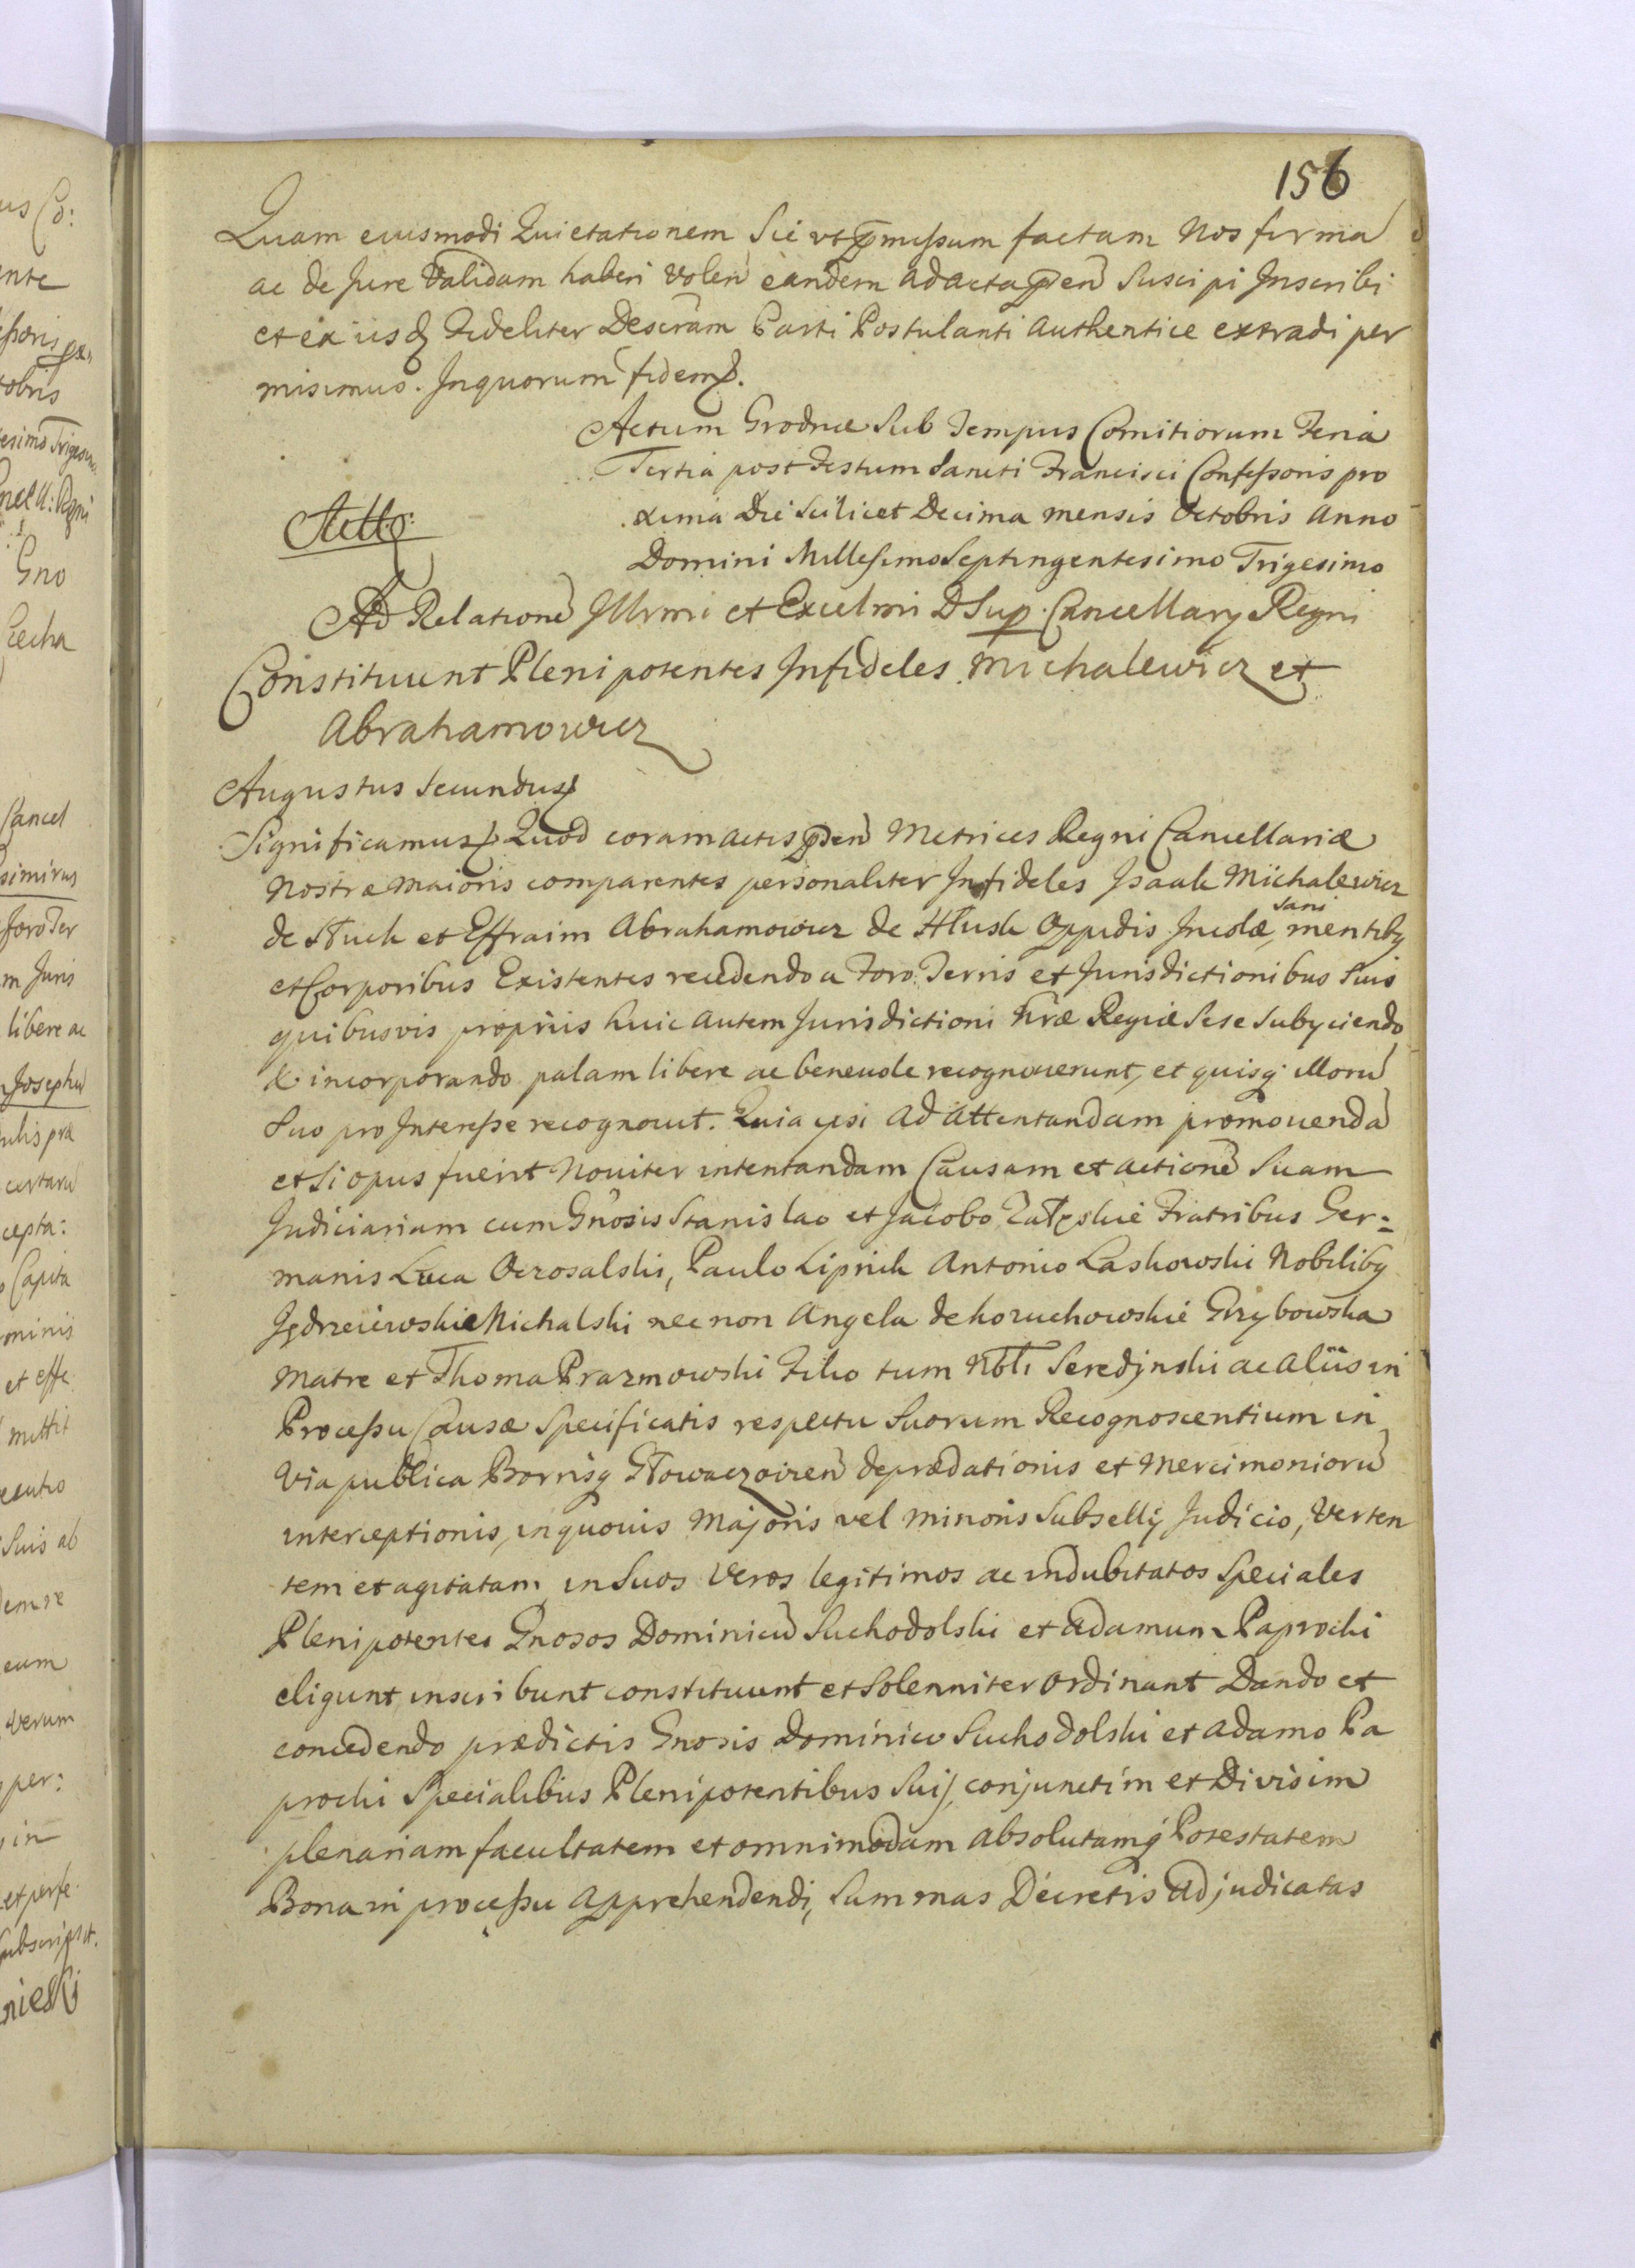 156
Quam eiusmodi Quietationem Sic vt p̄missum factam Nos firma
ac de Jure Validam haberi Volen̄ eandem ad acta p̄n̄ Suscipi Inscribi
et ex iisdē Fideliter Descr̄am Parti Postulanti Authentice extradi per
misimus. In quorum fidem.
Actum Grodnæ Sub Tempus Comitiorum Feria
Tertia post Festum Sancti Francisci Confessoris pro
xima Die Scilicet Decima mensis Octobris Anno
Domini Millesimo Septingentesimo Trigesimo
Ad Relationē Illrmi et Excelmi D Sup. Cancellarÿ Regni
Constituunt Plenipotentes Infideles Michalewicz et
Abrahamowicz
Augustus Secundus
Significamus Quod coram actis p̄n̄ Metrices Regni Cancellariæ
Nostræ Maioris comparentes personaliter Infideles Isaak Michalewicz
de Słuck et Effraim Abrahamowicz de Hłusk Oppidis Incolæ, sani mentibꝯ
et Corporibus Existentes recedendo a Foro Terris et Jurisdictionibus Suis
quibusvis propriis huic autem Jurisdictioni Nræ Regiæ Sese Subÿciendo
& incorporando palam libere ac beneuole recognouerunt, et quisqꝫ illorū
Suo pro Interesse recognouit. Quia ipsi ad attentandam promouendā
et Si opus fuerit Nouiter intentandam Causam et actionē Suam
Judiciariam cum Gnosis Stanislao et Jacobo Załęskie Fratribus Ger:
manis Luca Oczosalski, Paulo Lipnik Antonio Laskowski Nobilibꝯ
Jędrzeiewskie Michalski nec non Angela de Kozuchowskie Grzybowska
Matre et Thoma Prazmowski Filio tum Nbli Seredÿnski ac aliis in
Processu Causæ Specificatis respectu Suorum Recognoscentium in
Via publica Bonisqꝫ Głowaczoviен̄ deprædationis et Mercimoniorū
interceptionis, in quouis Majoris vel Minoris Subsellÿ Judicio, Verten
tem et agitatam, in Suos Veros legitimos ac indubitatos Speciales
Plenipotentes Gnosos Dominicū Suchodolski et Adamum Paprocki
eligunt inscribunt constituunt et Solenniter Ordinant Dando et
concedendo prædictis Gnosis Dominico Suchodolski et Adamo Pa
procki Specialibus Plenipotentibus Suis, conjunctim et Divisim
plenariam facultatem et omnimodam absolutamqꝫ Potestatem
Bona in processu apprehendendi, Summas Decretis adjudicatas